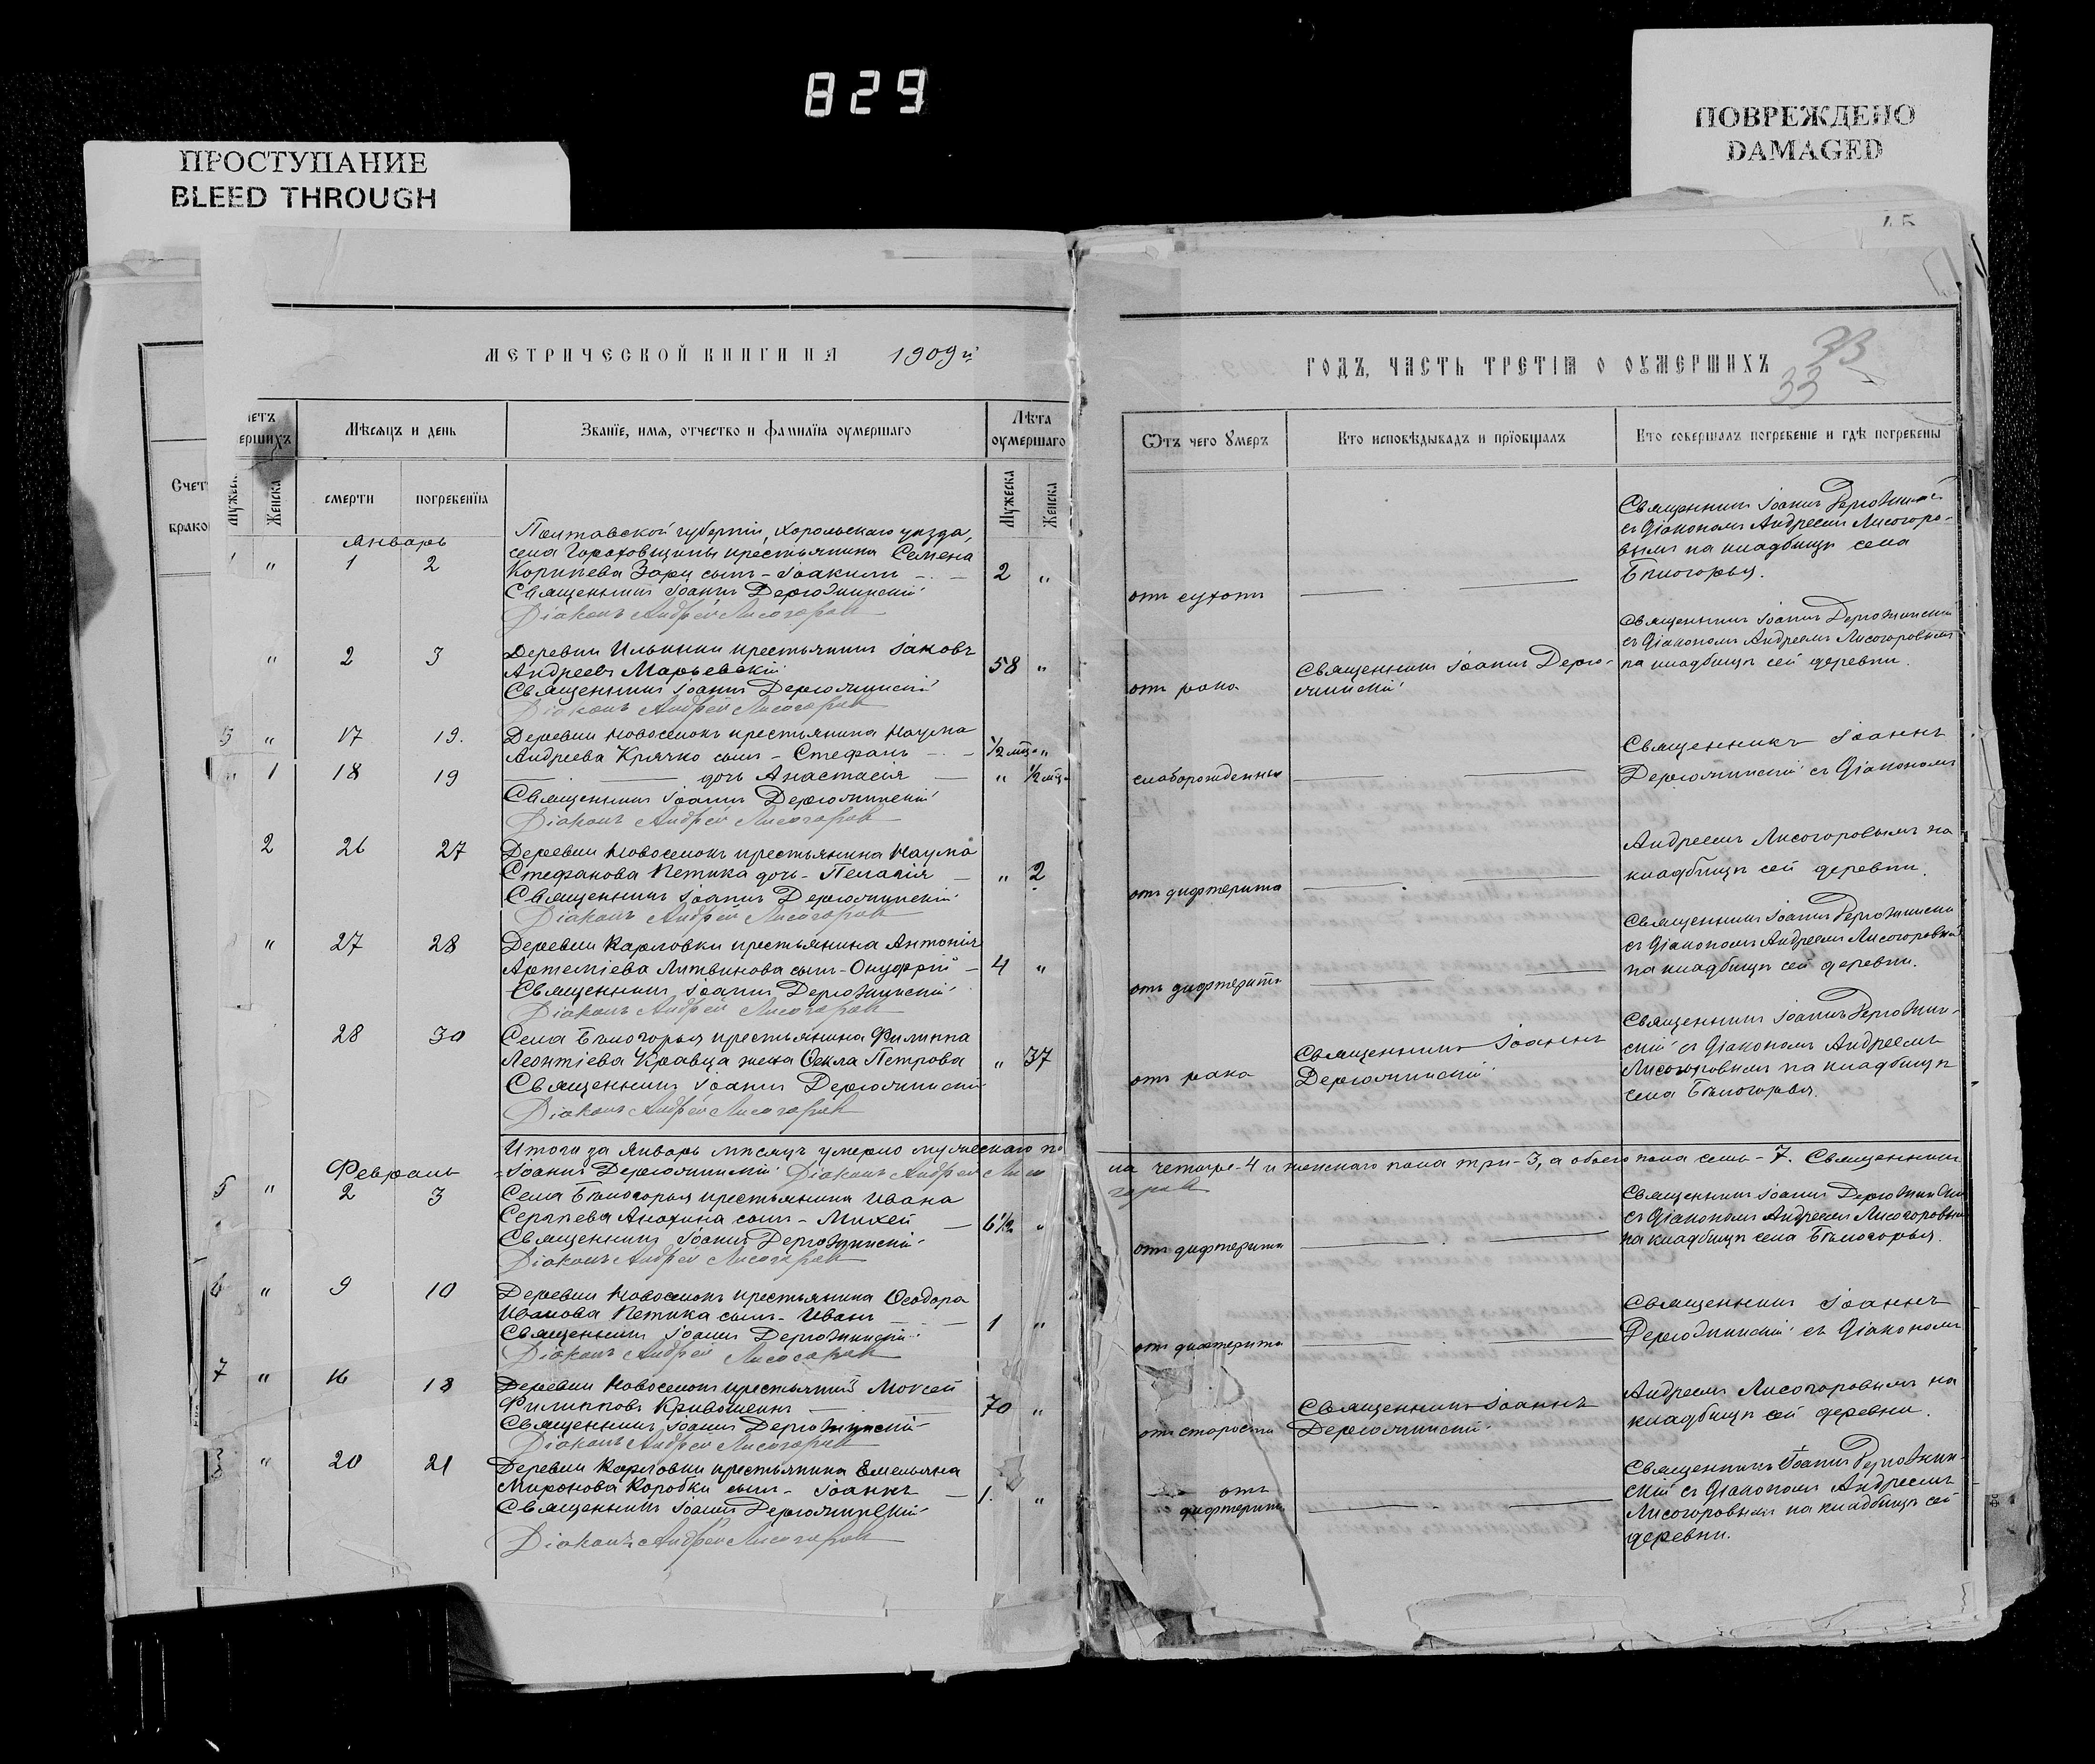 829
ПРОСТУПАНИЕ
BLEED THROUGH
ПОВРЕЖДЕНО
DAMAGED
МЕТРИЧЕСКОЙ КНИГИ НА 1909й
Мѣсяцъ и день
Званїе, имя, отчество и фамилїа оумершаго
Лѣта
оумершаго
Счет
брако
Женска
смерти
погребенїа
Мужеска
Женска
Январь
Полтавской губерніи, Хорольскаго уезда,
села Гороховщины крестьянина Семена
" 1 2 Корнѣева Зари сынъ - Іоакимъ - 2 "
Священникъ Іоаннъ Держинскій
Діаконъ Андрей Лисогоровъ
" 2 3 Деревни Ильинки крестьянинъ Іаковъ
Андреевъ Марьевскій 58 "
Священникъ Іоаннъ
Діаконъ Андрей Лисогоровъ
3 " 17 19. Деревни Новоселокъ крестьянина Наума
Андреева Крячко сынъ - Стефанъ - 1/2 мѣс. "
" 1 18 19 дочь Анастасія " 1/2 мѣс.
Священникъ Іоаннъ
Діаконъ Андрей Лисогоровъ
2 26 27 Деревни Новоселокъ крестьянина Наума
Стефанова Петика дочь - Пелагія " 2
Священникъ Іоаннъ
Діаконъ Андрей Лисогоровъ
" 27 28 Деревни Карловки крестьянина Антонія
Артеміева Литвинова сынъ - Онуфрій - 4 "
Священникъ Іоаннъ
Діаконъ Андрей Лисогоровъ
28 30 Села Бѣлогорья крестьянина Филиппа
Леонтіева Кравца жена Ѳекла Петрова " 37
Священникъ Іоаннъ
Діаконъ Андрей Лисогоровъ
Итого за Январь мѣсяцъ умерло мужескаго по
Февраль
Іоаннъ Діаконъ Андрей Лисо
5 " 2 3 Села Бѣлогорья крестьянина Ивана
Сергѣева Анохина сынъ - Михей - 6 1/2 "
Священникъ Іоаннъ
Діаконъ Андрей Лисогоровъ
6 " 9 10 Деревни Новоселокъ крестьянина Ѳеодора
Иванова Петика сынъ - Иванъ - 1 "
Священникъ Іоаннъ
Діаконъ Андрей Лисогоровъ
7 " 16 18 Деревни Новоселокъ крестьянинъ Моисей
Филипповъ Кривошеинъ 70 "
Священникъ Іоаннъ
Діаконъ Андрей Лисогоровъ
" 20 21 Деревни Карловки крестьянина Емельяна
Миронова Коробки сынъ - Іоаннъ - 1. "
Священникъ Іоаннъ
Діаконъ Андрей Лисогоровъ
ГОДЪ, ЧАСТЬ ТРЕТІЯ О ОУМЕРШИХЪ
33
33
Ѿтъ чего ȣмеръ
Кто исповѣдывалъ и прїобщалъ
Кто совершалъ погребенїе и гдѣ погребены
Священникъ Іоаннъ
съ Діакономъ Андреемъ Лисогоро-
вымъ на кладбищѣ села
Бѣлогорья.
отъ сухотъ
Священникъ Іоаннъ
съ Діакономъ Андреемъ Лисогоровымъ
на кладбищѣ сей деревни.
отъ рака
Священникъ Іоаннъ
Священникъ Іоаннъ
слаборожденные
съ Діакономъ
Андреемъ Лисогоровымъ на
кладбищѣ сей деревни.
отъ дифтерита
Священникъ Іоаннъ
съ Діакономъ Андреемъ Лисогоровымъ
на кладбищѣ сей деревни.
отъ дифтерита
Священникъ Іоаннъ
съ Діакономъ Андреемъ
Лисогоровымъ на кладбищѣ
села Бѣлогорья.
отъ рака
Священникъ Іоаннъ
ла четыре - 4 и женскаго пола три - 3, а обоего пола семь - 7. Священникъ
горовъ
Священникъ Іоаннъ
съ Діакономъ Андреемъ Лисогоровымъ
на кладбищѣ села Бѣлогорья.
отъ дифтерита
Священникъ Іоаннъ
съ Діакономъ
отъ дифтерита
Андреемъ Лисогоровымъ на
кладбищѣ сей деревни.
отъ старости
Священникъ Іоаннъ
Священникъ Іоаннъ
съ Діакономъ Андреемъ
Лисогоровымъ на кладбищѣ сей
деревни.
отъ
дифтерита